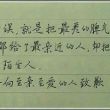 误，就是把最差的脾气
都给了最亲近的人，却把
陌生人。
向至亲至爱的人致歉